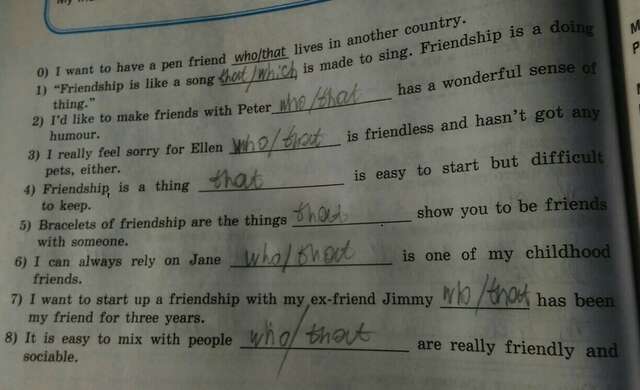 0) I want to have a pen friend who/that lives in another country.
1) "Friendship is like a song that/which is made to sing. Friendship is a doing
thing."
2) I'd like to make friends with Peter who/that has a wonderful sense of
humour.
3) I really feel sorry for Ellen who/that is friendless and hasn't got any
pets, either.
4) Friendship is a thing that is easy to start but difficult
to keep.
5) Bracelets of friendship are the things that show you to be friends
with someone.
6) I can always rely on Jane who/that is one of my childhood
friends.
7) I want to start up a friendship with my ex-friend Jimmy who/that has been
my friend for three years.
8) It is easy to mix with people who/that are really friendly and
sociable.